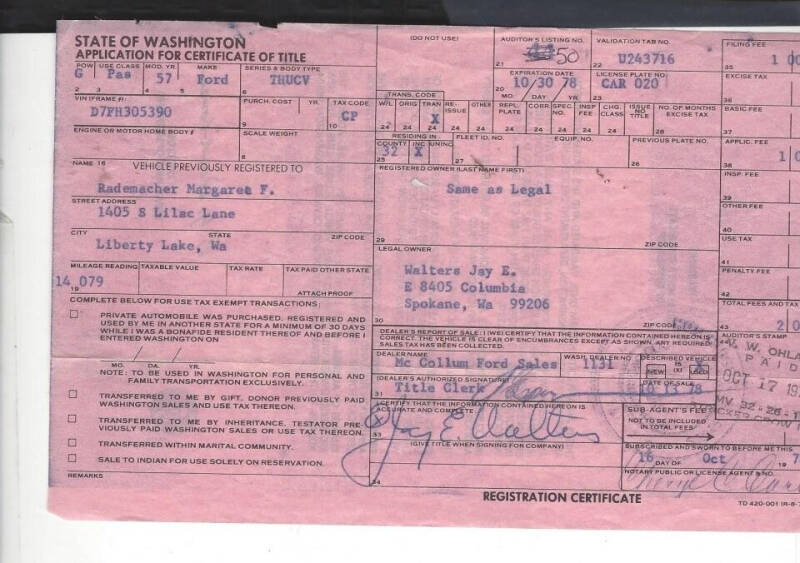 STATE OF WASHINGTON
APPLICATION FOR CERTIFICATE OF TITLE
(DO NOT USE)
AUDITOR'S LISTING NO.
50
21
VALIDATION TAB NO.
U243716
22
FILING FEE
1 00
35
POW
G
USE CLASS
Pas
MOD. YR.
57
MAKE
Ford
SERIES & BODY TYPE
THUCV
EXPIRATION DATE
10/30 78
20 MO. / DAY / YR.
LICENSE PLATE NO.
CAR 020
23
EXCISE TAX
36
VIN IFRAME #:
D7FH305390
PURCH. COST YR.
9
TAX CODE
CP
10
TRANS. CODE
W/L ORIG TRAN RE-ISSUE OTHER REPL. PLATE CORR SPEC. NO. INSP FEE CHG. CLASS ISSUE NO TITLE NO. OF MONTHS EXCISE TAX
X
BASIC FEE
37
ENGINE OR MOTOR HOME BODY #
SCALE WEIGHT
8
RESIDING IN
COUNTY INC UNINC
32 X
25
FLEET ID NO.
EQUIP. NO.
PREVIOUS PLATE NO.
26
APPLIC. FEE
NAME 16 VEHICLE PREVIOUSLY REGISTERED TO
Rademacher Margaret F.
REGISTERED OWNER (LAST NAME FIRST)
Same as Legal
INSP. FEE
39
STREET ADDRESS
1405 S Lilac Lane
OTHER FEE
40
CITY STATE ZIP CODE
Liberty Lake, Wa
29 ZIP CODE
USE TAX
41
LEGAL OWNER
Walters Jay E.
E 8405 Columbia
Spokane, Wa 99206
30 ZIP CODE
PENALTY FEE
42
TOTAL FEES AND TAX
43
MILEAGE READING
14 079
19
TAXABLE VALUE
TAX RATE
TAX PAID OTHER STATE
ATTACH PROOF
COMPLETE BELOW FOR USE TAX EXEMPT TRANSACTIONS:
PRIVATE AUTOMOBILE WAS PURCHASED, REGISTERED AND
USED BY ME IN ANOTHER STATE FOR A MINIMUM OF 30 DAYS
WHILE I WAS A BONAFIDE RESIDENT THEREOF AND BEFORE I
ENTERED WASHINGTON ON
MO. DA. YR.
NOTE: TO BE USED IN WASHINGTON FOR PERSONAL AND
FAMILY TRANSPORTATION EXCLUSIVELY.
TRANSFERRED TO ME BY GIFT, DONOR PREVIOUSLY PAID
WASHINGTON SALES AND USE TAX THEREON.
TRANSFERRED TO ME BY INHERITANCE. TESTATOR PRE-
VIOUSLY PAID WASHINGTON SALES OR USE TAX THEREON.
TRANSFERRED WITHIN MARITAL COMMUNITY.
SALE TO INDIAN FOR USE SOLELY ON RESERVATION.
REMARKS
DEALER'S REPORT OF SALE: I (WE) CERTIFY THAT THE INFORMATION CONTAINED HEREIN IS
CORRECT. THE VEHICLE IS CLEAR OF ENCUMBRANCES EXCEPT AS SHOWN. ANY REQUIRED
SALES TAX HAS BEEN COLLECTED.
AUDITOR'S STAMP
DEALER NAME
Mc Collum Ford Sales
WASH. DEALER NO.
1131
DESCRIBED VEHICLE
NEW IS USED
PAID
OCT 17
(DEALER'S AUTHORIZED SIGNATURE)
Title Clerk
DATE OF SALE
10 13 78
I CERTIFY THAT THE INFORMATION CONTAINED HEREIN IS
ACCURATE AND COMPLETE.
Jay E Walters
33 (GIVE TITLE WHEN SIGNING FOR COMPANY)
34
SUB-AGENT'S FEE
NOT TO BE INCLUDED
IN TOTAL FEES
SUBSCRIBED AND SWORN TO BEFORE ME THIS
16 DAY OF Oct 19
NOTARY PUBLIC OR LICENSE AGENT & NO.
REGISTRATION CERTIFICATE
TD 420-001